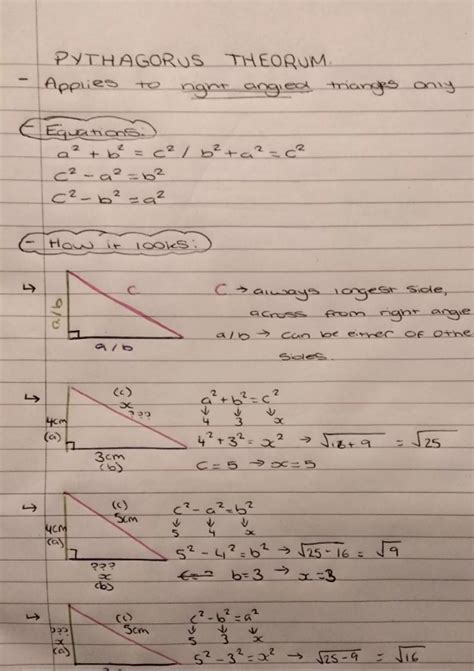 PYTHAGORUS THEORUM.
- Applies to right angled triangles only
- Equations:
a² + b² = c² / b² + a² = c²
c² - a² = b²
c² - b² = a²
- How it looks:
↳ a/b c a/b
C → always longest side,
across from right angle
a/b → can be either of othe
sides.
↳ 4cm (a) (c) x ??? 3cm (b)
a² + b² = c²
↓ ↓ ↓
4 3 x
4² + 3² = x² → √16 + 9 = √25
c = 5 → x = 5
↳ 4cm (a) (c) 5cm ??? x (b)
c² - a² = b²
↓ ↓ ↓
5 4 x
5² - 4² = b² → √25 - 16 = √9
b = 3 → x = 3
↳ ??? x (a) (c) 5cm
c² - b² = a²
↓ ↓ ↓
5 3 x
5² - 3² = x² → √25 - 9 = √16